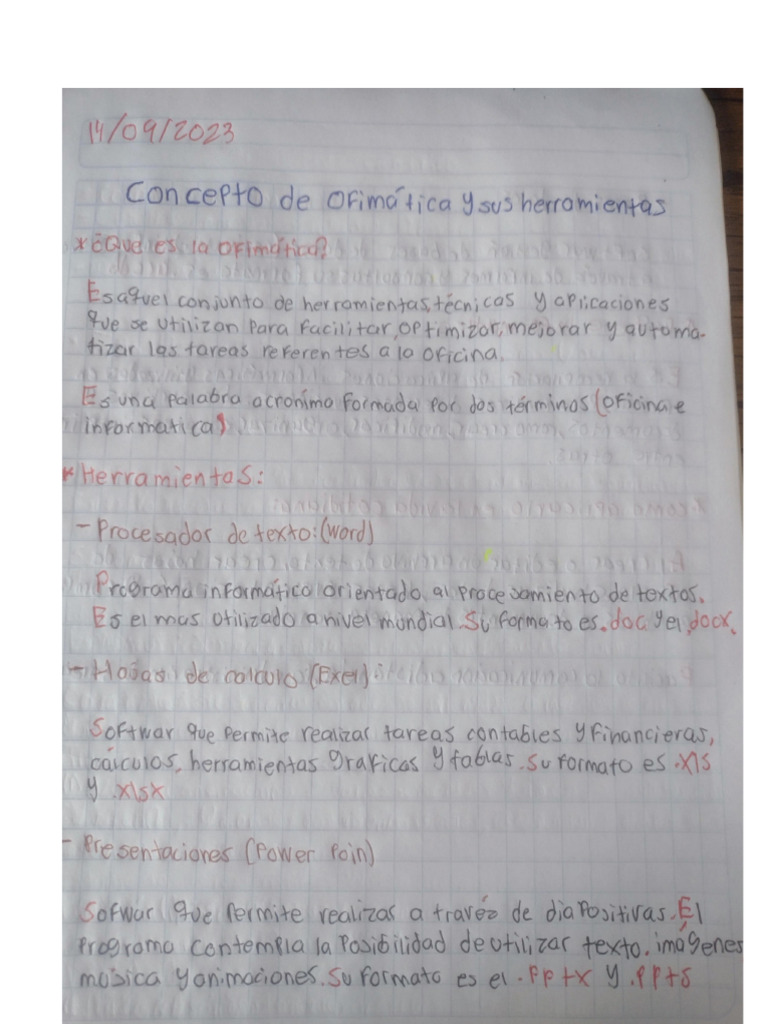 14/09/2023
Concepto de Ofimática y sus herramientas
* ¿Qué es la Ofimática?
Es aquel conjunto de herramientas, técnicas y aplicaciones
que se utilizan para facilitar, optimizar, mejorar y automa-
tizar las tareas referentes a la oficina.
Es una palabra acronimo formada por dos términos (oficina e
informatica).
* Herramientas:
- Procesador de texto: (Word)
Programa informático orientado al procesamiento de textos.
Es el mas utilizado a nivel mundial. Su formato es .doc y el .docx.
- Hojas de calculo (Exel)
Softwar que permite realizar tareas contables y financieras,
cálculos, herramientas graficas y tablas. Su formato es .xls
y .xlsx
- Presentaciones (Power Poin)
Sofwar que permite realizas a travéz de diapositivas. El
programa contempla la posibilidad de utilizar texto, imágenes
musica y animaciones. Su formato es el .pptx y .ppts